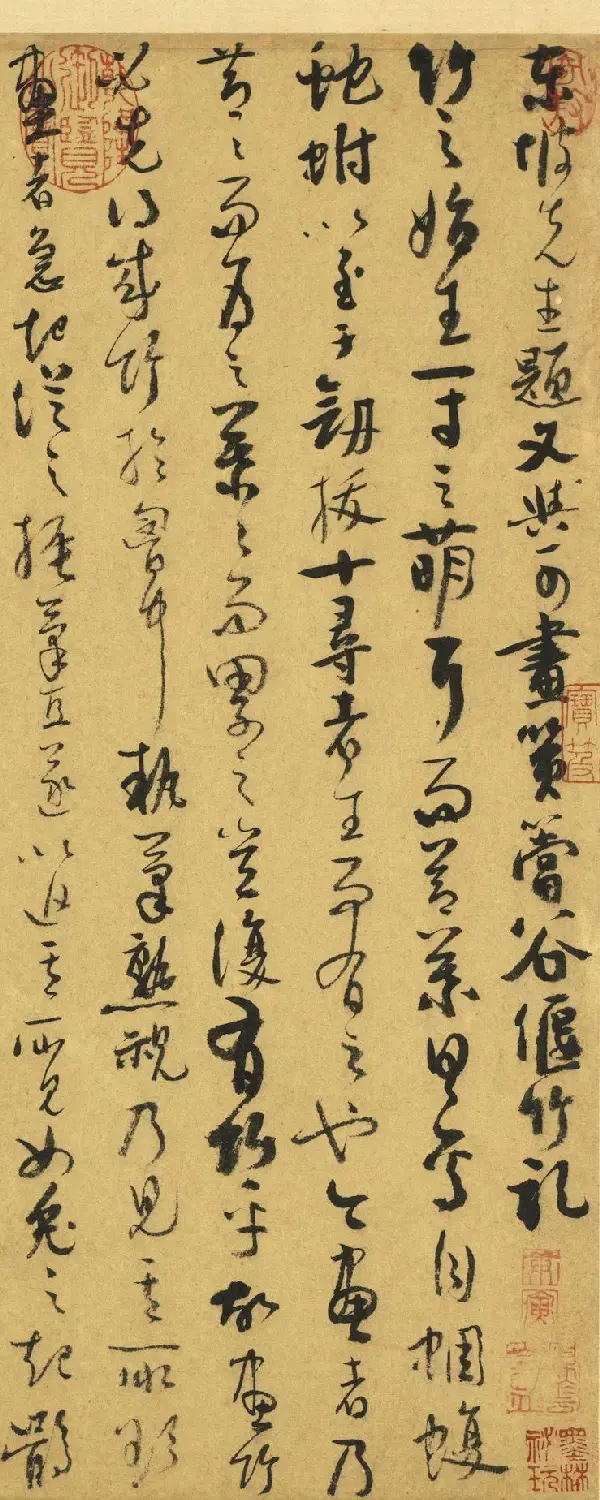 東坡先生題文與可畫篔簹谷偃竹記
竹之始生一寸之萌耳而節葉具焉自蜩蝮
蛇蚹以至于劒拔十尋者生而有之也今畫者乃
節節而爲之葉葉而累之豈復有竹乎故畫竹
必先得成竹於胸中執筆熟視乃見其所欲
畫者急起從之振筆直遂以追其所見如兔之起鶻
墨林祕玩